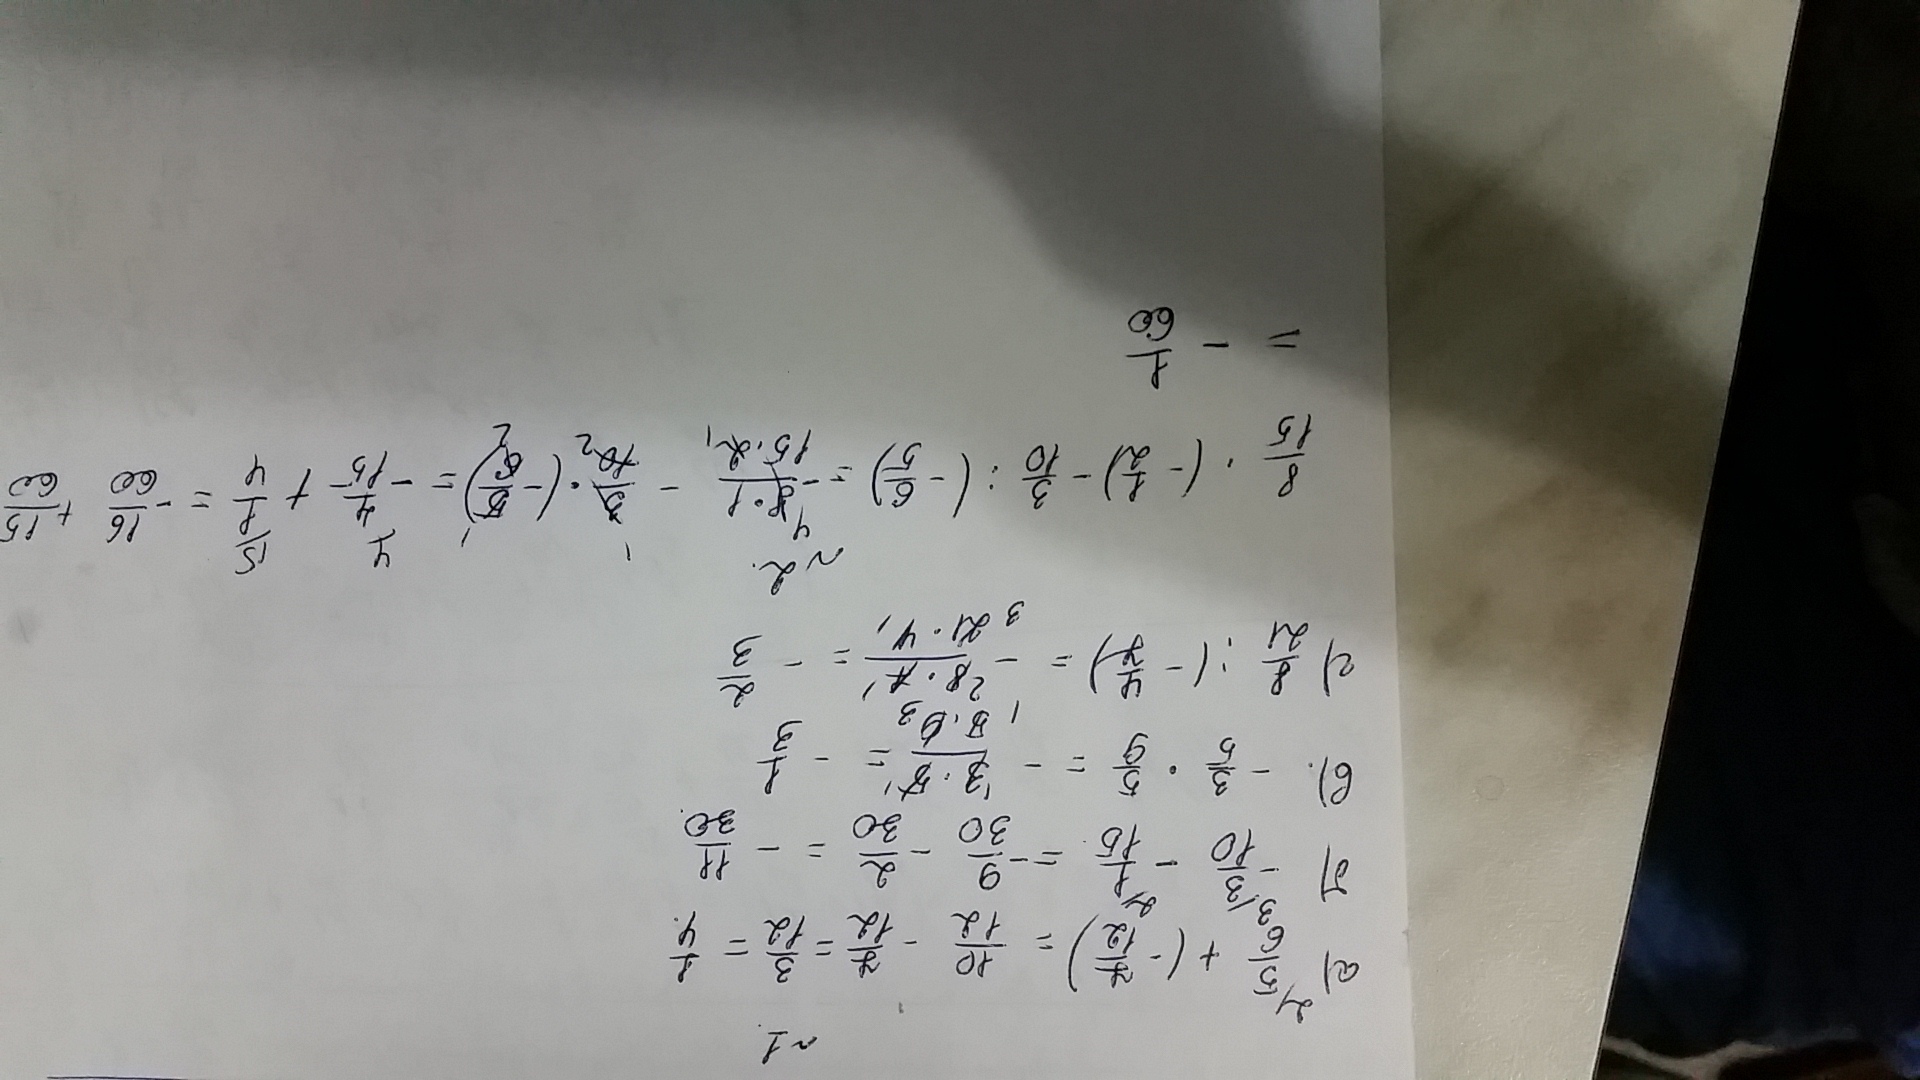 ~1.
а) 2/ 5/6 + (- 7/12) = 10/12 - 7/12 = 3/12 = 1/4.
б) - 3/ 3/10 - 2/ 1/15 = - 9/30 - 2/30 = - 11/30.
в). - 3/5 · 5/9 = - 3·5/5·9 = - 1/3
г) 8/21 : (- 4/7) = - 8·7/21·4 = - 2/3
~2.
8/15 · (- 1/2) - 3/10 : (- 6/5) = - 8·1/15·2 - 3/10 · (- 5/6) = - 4/15 + 1/4 = - 16/60 + 15/60
= - 1/60